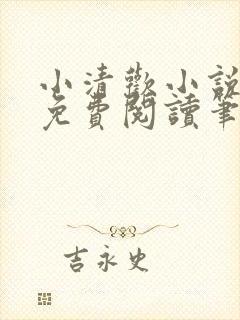 小清歡小說
免費閱讀筆
吉永史